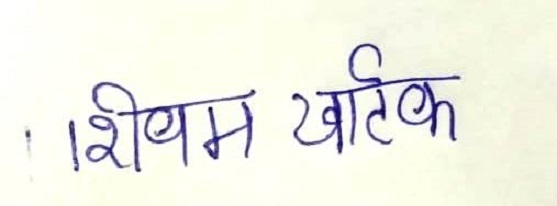 शिवम खटिक